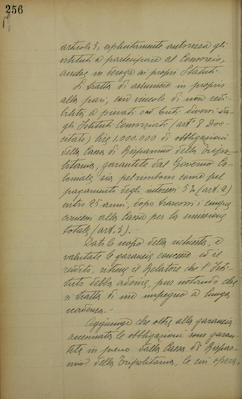 256
articolo 3, esplicitamente autorizza gli
istituti a partecipare al Consorzio,
anche in deroga ai propri Statuti.
Si tratta di assumere in proprio
alla pari, col vincolo di non
a privati od Enti diversi da
gli Istituti (art. 8
citato) lire 1.000.000 di obbligazioni
della Cassa di Risparmio della Tripo-
litania, garantite dal Governo Co-
loniale, sia pel rimborso come pel
pagamento degli interessi 5% (art. 2)
entro 25 anni, dopo trascorsi i cinque
concessi alla Cassa per la emissione
totale (art. 5).
Dato lo scopo della richiesta, e
valutate le garanzie concesse, ed il
reddito, ritiene il Relatore che l'Isti-
tuto debba aderire, pur notando che
si tratta di un impegno a lunga
scadenza.
Aggiunge che oltre alla garanzia
accennata le obbligazioni sono garan-
tite in pieno dalla Cassa di Rispar-
mio della Tripolitania, le cui opera-